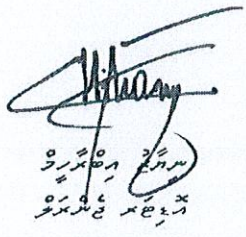 ނިޔާޒު އިބްރާހީމް
އޮޑިޓަރ ޖެންރަލް